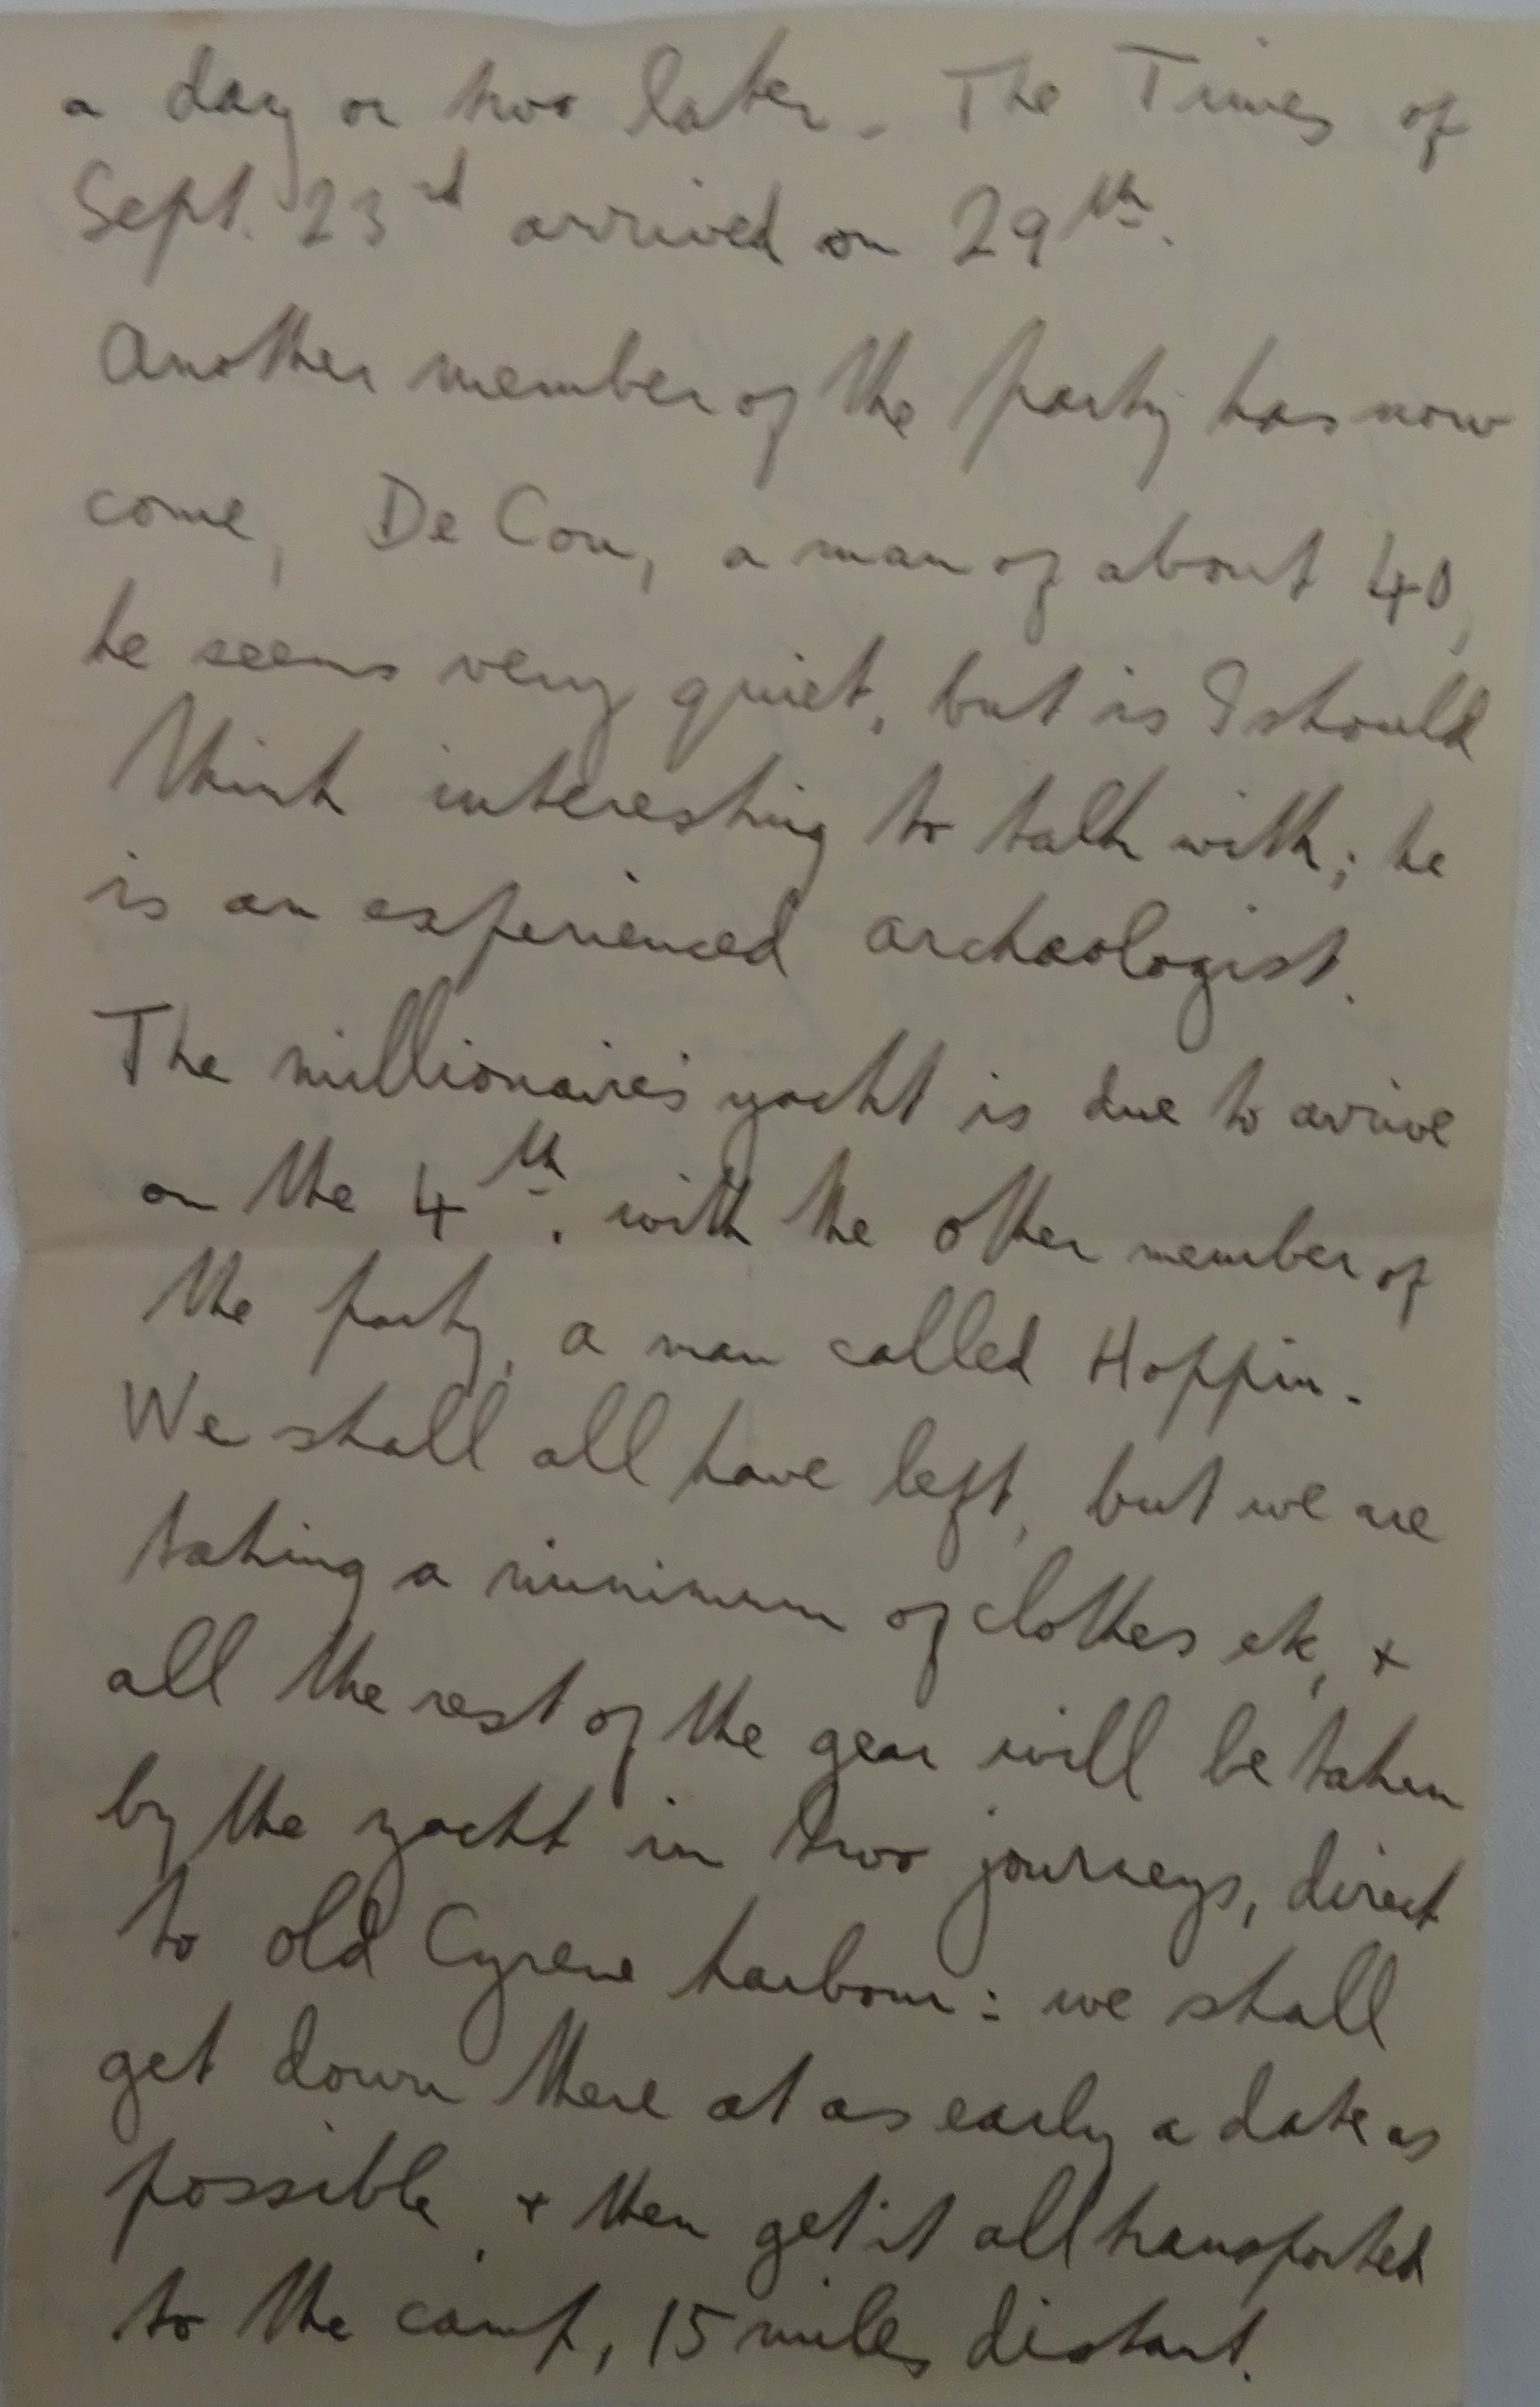 a day or two later. The Times of
Sept. 23rd arrived on 29th.
Another member of the party has now
come, De Cou, a man of about 40,
he seems very quiet, but is I should
think interesting to talk with; he
is an experienced archaeologist.
The millionaire's yacht is due to arrive
on the 4th. with the other member of
the party, a man called Hoppin.
We shall all have left, but we are
taking a minimum of clothes etc, +
all the rest of the gear will be taken
by the yacht in two journeys, direct
to old Cyrene harbour: we shall
get down there at as early a date as
possible, + then get it all transported
to the camp, 15 miles distant.